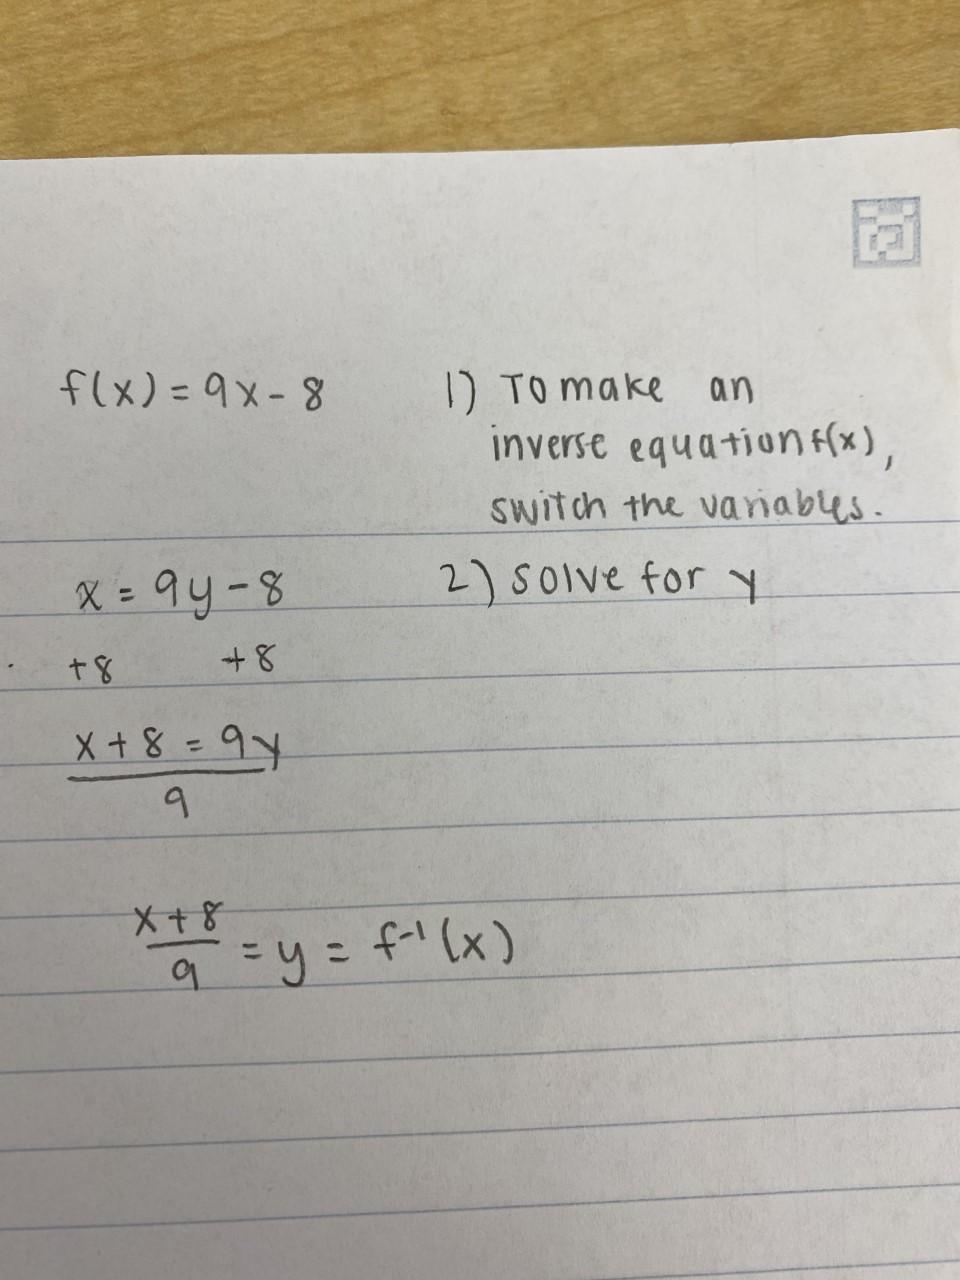 f(x) = 9x - 8
1) To make an
inverse equation f(x),
switch the variables.
x = 9y - 8
2) solve for y
+8 +8
x + 8 = 9y
9
x + 8
9
= y = f⁻¹(x)